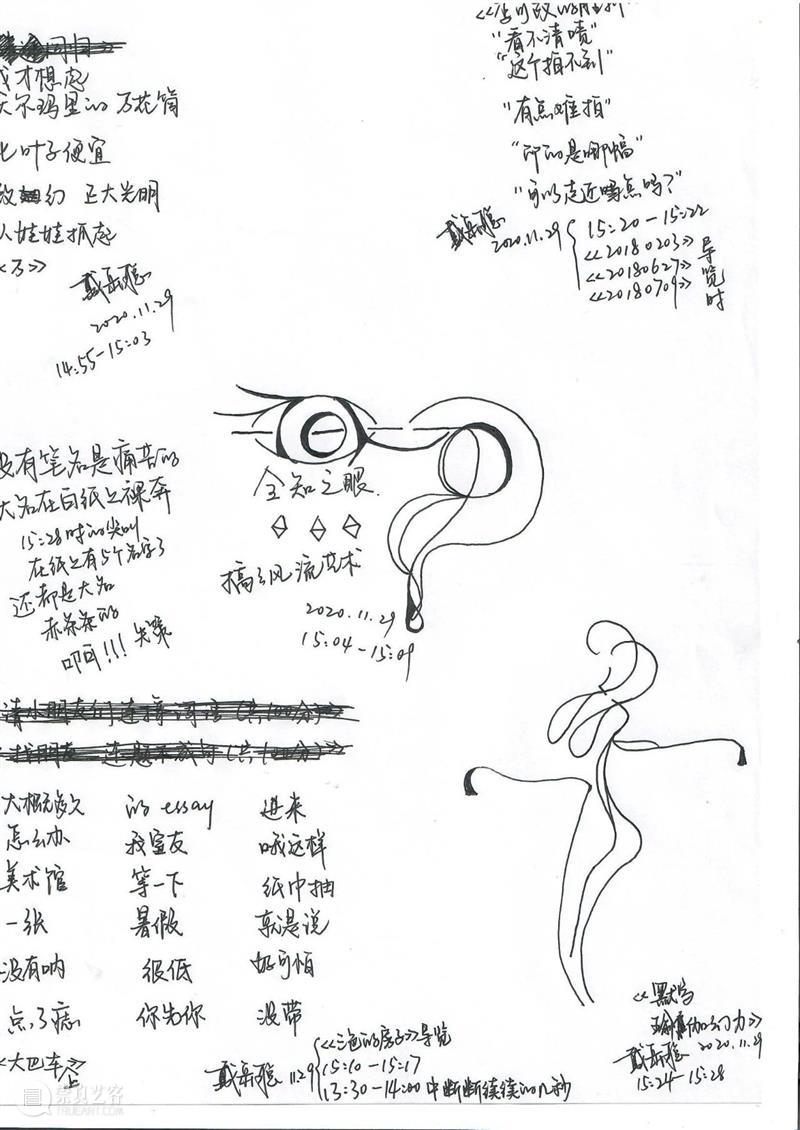 我才想起
沃尔玛里的万花筒
七叶子便宜
正大光明
人娃娃抓起
<万>>
戴岳稳
2020.11.29
14:55-15:03
"看不清啧"
"这个拍不到"
"有点难拍"
"印的是哪幅"
"可以走近嘛点吗?"
戴岳稳
2020.11.29
15:20-15:22
<<20180203>>
<<20180627>>
<<20180709>>
导览时
没有笔名是痛苦的
大名在白纸上裸奔
15:28时的尖叫
在纸上有5个名字了
还都是大名
赤条条的
叩问!!!失策
全知之眼.
搞了风流艺术
2020.11.29
15:04-15:09
大概多久 的essay 进来
怎么办 我室友 哦这样
美术馆 等一下 纸巾抽
一张 暑假 就是说
没有呐 很低 好可怕
点了痣 你先你 没带
<大巴车上>>
戴岳稳 11.29
<<三色的房子>>导览
15:10-15:17
13:30-14:00中断断续续的几秒
<<默写
戴岳稳 2020.11.29
15:24-15:28
崇真艺客
TRUEART.COM